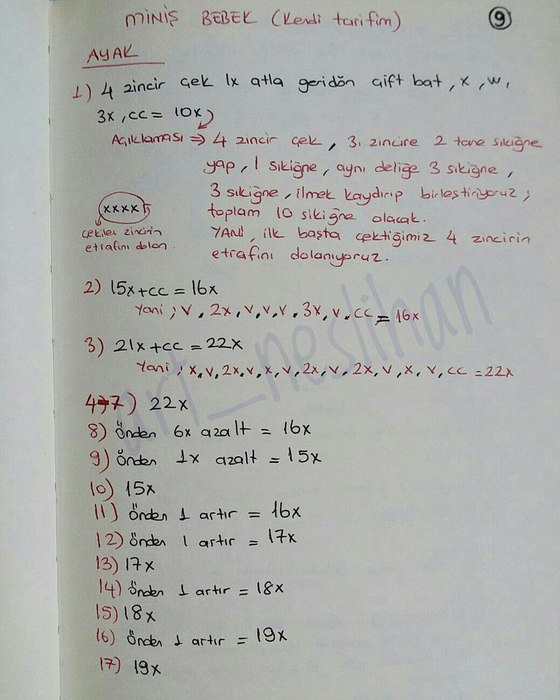 MİNİŞ BEBEK (Kendi tarifim)
9
AYAK
1) 4 zincir çek 1x atla geridön çift bat, x, w,
3x, cc = 10x
Açıklaması ⇒ 4 zincir çek, 3. zincire 2 tane sıkiğne
yap, 1 sıkiğne, aynı deliğe 3 sıkiğne,
3 sıkiğne, ilmek kaydırıp birleştiriyoruz;
toplam 10 sıkiğne olacak.
YANİ, ilk başta çektiğimiz 4 zincirin
etrafını dolanıyoruz.
xxxx
çekilen zincirin
etrafını dolan.
2) 15x+cc = 16x
Yani; v, 2x, v, v, v, 3x, v, cc = 16x
3) 21x+cc = 22x
Yani; x, v, 2x, v, x, v, 2x, v, 2x, v, x, v, cc = 22x
4→7) 22x
8) Önden 6x azalt = 16x
9) Önden 1x azalt = 15x
10) 15x
11) Önden 1 artır = 16x
12) Önden 1 artır = 17x
13) 17x
14) Önden 1 artır = 18x
15) 18x
16) Önden 1 artır = 19x
17) 19x
art_neslihan